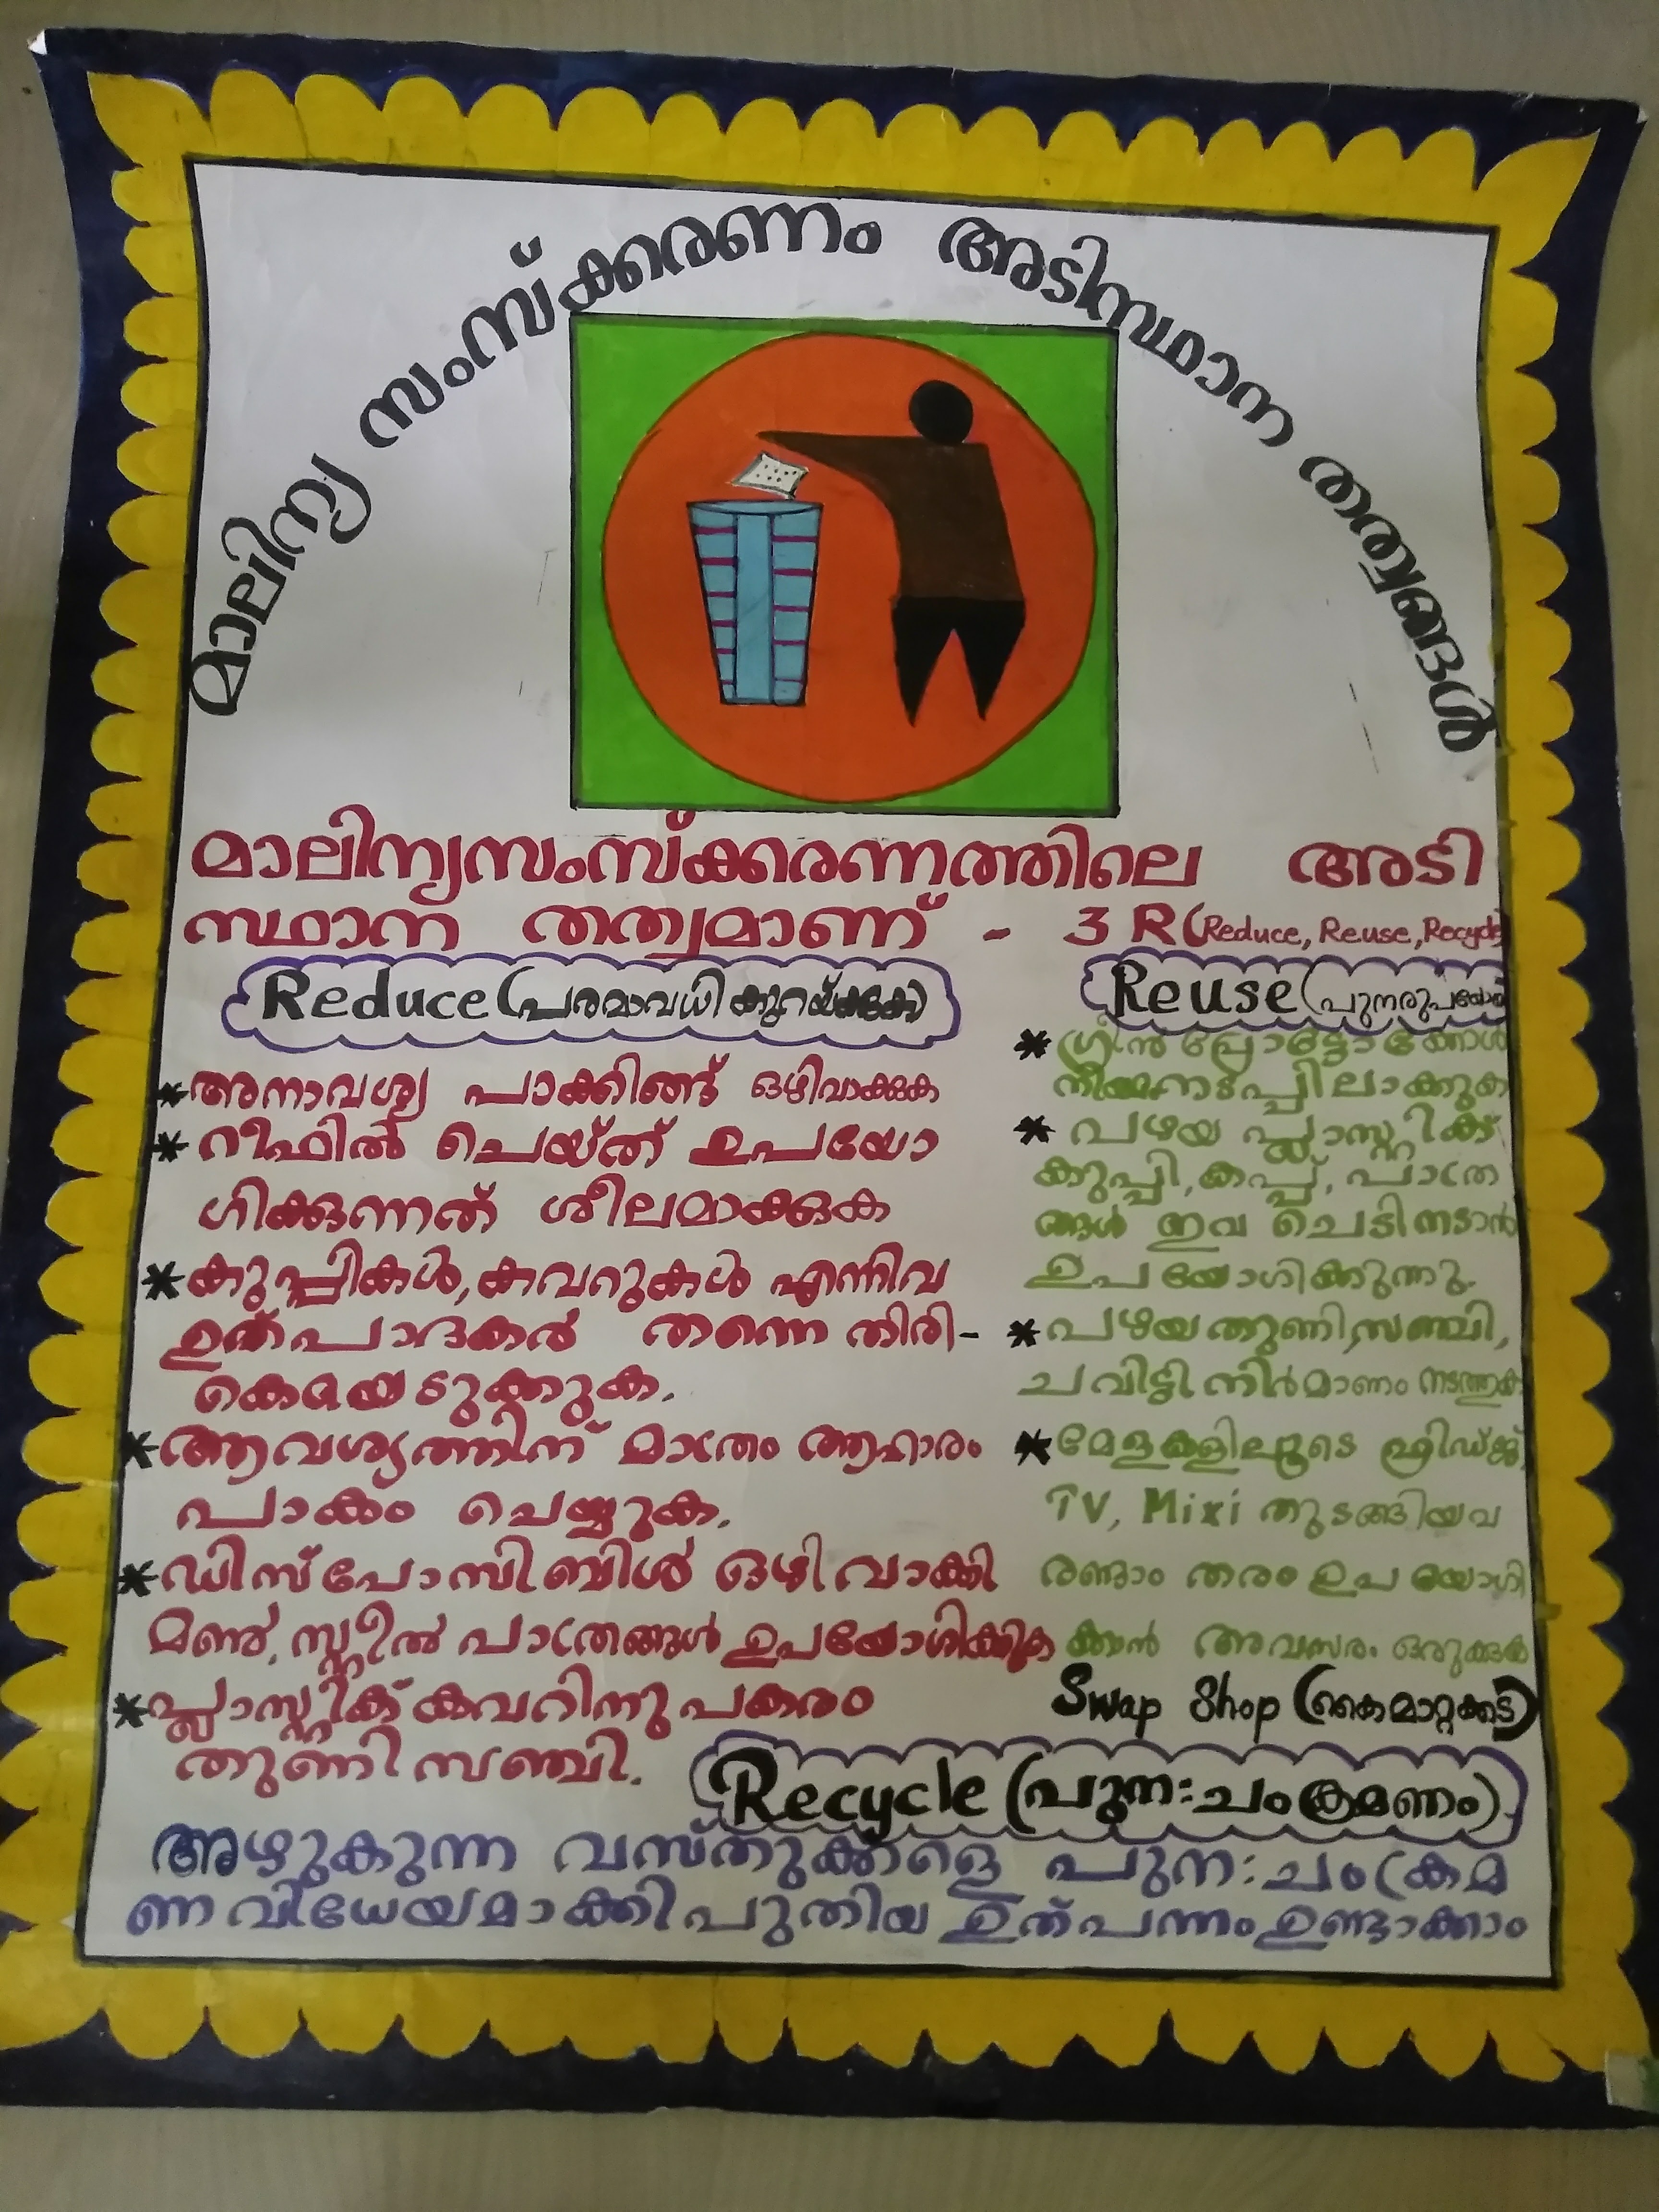 മാലിന്യ സംസ്ക്കരണം അടിസ്ഥാന തത്വങ്ങൾ
മാലിന്യസംസ്ക്കരണത്തിലെ അടി
സ്ഥാന തത്വമാണ് - 3 R (Reduce, Reuse, Recycle)
Reduce (പരമാവധി
* അനാവശ്യ പാക്കിങ്ങ് ഒഴിവാക്കുക
* റീഫിൽ ചെയ്ത് ഉപയോ
ഗിക്കുന്നത് ശീലമാക്കുക
* കുപ്പികൾ, കവറുകൾ എന്നിവ
ഉത്പാദകർ തന്നെ തിരി-
കെയെടുക്കുക.
* ആവശ്യത്തിന് മാത്രം ആഹാരം
പാകം ചെയ്യുക.
* ഡിസ്പോസിബിൾ ഒഴിവാക്കി
മണ്ണ്, സ്റ്റീൽ പാത്രങ്ങൾ ഉപയോഗിക്കുക
* പ്ലാസ്റ്റിക് കവറിനു പകരം
തുണി സഞ്ചി.
Reuse (പുനരുപയോഗ
* ഗ്രീൻ പ്രോട്ടോക്കോൾ
നടപ്പിലാക്കുക
* പഴയ പ്ലാസ്റ്റിക്ക്
കുപ്പി, കപ്പ്, പാത്ര
ങ്ങൾ ഇവ ചെടി നടാൻ
ഉപയോഗിക്കുന്നു.
* പഴയ തുണി, സഞ്ചി,
ചവിട്ടി നിർമാണം നടത്തുക
* മേളകളിലൂടെ ഫ്രിഡ്ജ്,
TV, Mixi തുടങ്ങിയവ
രണ്ടാം തരം ഉപയോഗി
ക്കാൻ അവസരം ഒരുക്കുക
Swap Shop (കൈമാറ്റക്കട)
Recycle (പുന:ചംക്രമണം)
അഴുകുന്ന വസ്തുക്കളെ പുന:ചംക്രമ
ണ വിധേയമാക്കി പുതിയ ഉത്പന്നം ഉണ്ടാക്കാം